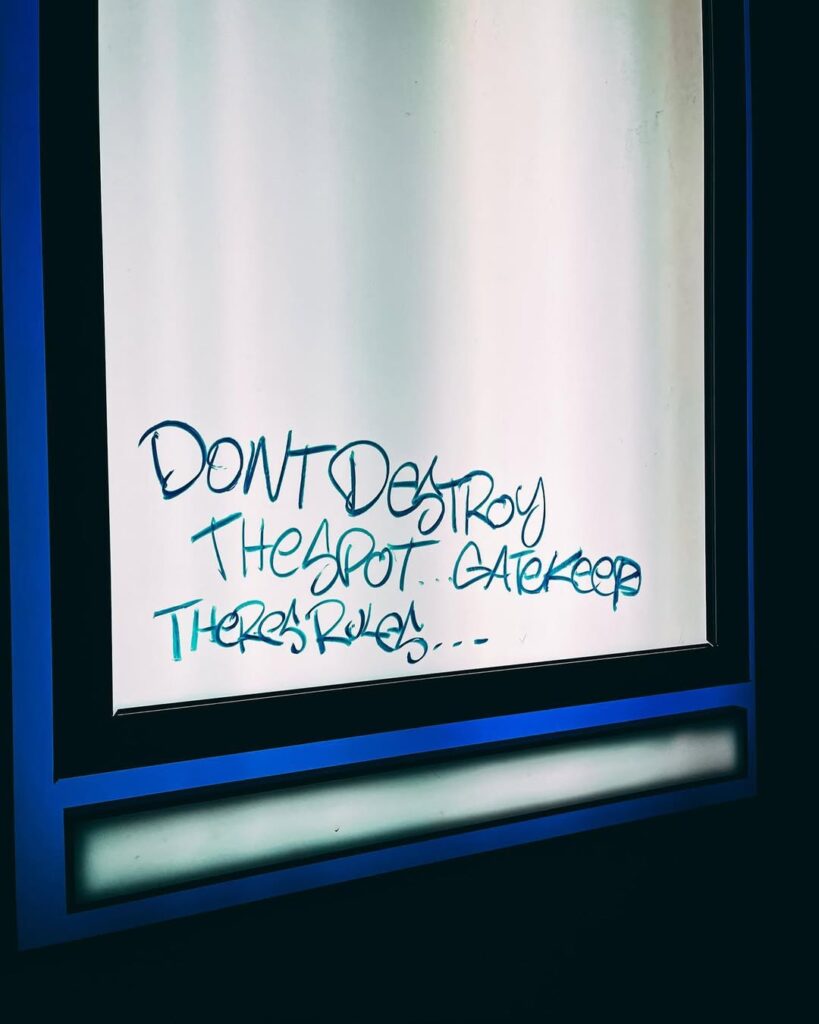 DONT DESTROY
THE SPOT... GATEKEEP
THERES RULES...-